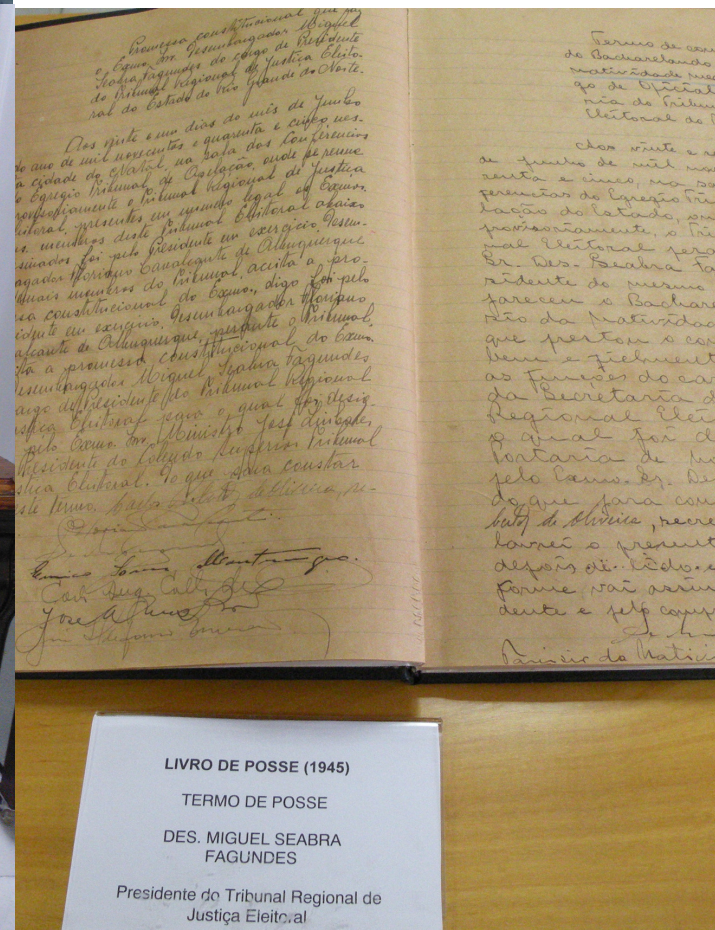 Promessa constitucional que faz
o Exmo. Snr. Desembargador Miguel
Seabra Fagundes do cargo de Presidente
do Tribunal Regional de Justiça Eleito-
ral do Estado do Rio Grande do Norte.
Aos vinte e um dias do mês de Junho
do ano de mil novecentos e quarenta e cinco nes-
a cidade do Natal, na sala das Conferencias
Egregio Tribunal de Apelação, onde se reune
provisoriamente o Tribunal Regional de Justiça
eitoral, presentes em numero legal os Exmos.
s. membros deste Tribunal Eleitoral abaixo
sinados foi pelo Presidente em exercicio, Desem-
gador Floriano Cavalcante de Albuquerque
mais membros do Tribunal, aceita a pro-
sa constitucional do Exmo., digo foi pelo
sidente em exercicio, Desembargador Floriano
alcante de Albuquerque, perante o Tribunal,
ta a promessa constitucional do Exmo.
esembargador Miguel Seabra Fagundes
argo de Presidente do Tribunal Regional
stiça Eleitoral para o qual foi desig-
pelo Exmo. Snr. Ministro José Linhares,
Presidente do Colendo Superior Tribunal
stiça Eleitoral. Do que para constar
ste Termo.
Eurico
José
Termo de com
do Bacharelando
natividade
go de Oficial
ria do Tribun
Eleitoral do
Aos vinte e
de junho de mil nov
renta e cinco, na sa
ferencias do Egregio Tri
lação do Estado, on
provisoriamente, o Tri
nal Eleitoral pera
Sr. Des. Seabra Fa
sidente do mesmo
pareceu o Bachare
sio da Natividad
que prestou o com
bem e fielmente
as funções do car
da Secretaria d
Regional Eleit
o qual foi d
Portaria de
pelo Exmo. Sr. Des
do que para cons
de Oliveira, secre
lavrei o present
depois de lido e
forme vai assin
dente e pelo comp
da Nativi
LIVRO DE POSSE (1945)
TERMO DE POSSE
DES. MIGUEL SEABRA
FAGUNDES
Presidente do Tribunal Regional de
Justiça Eleitoral